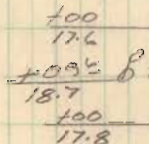 +00
17.6
+09⁵
18.7
+00
17.8